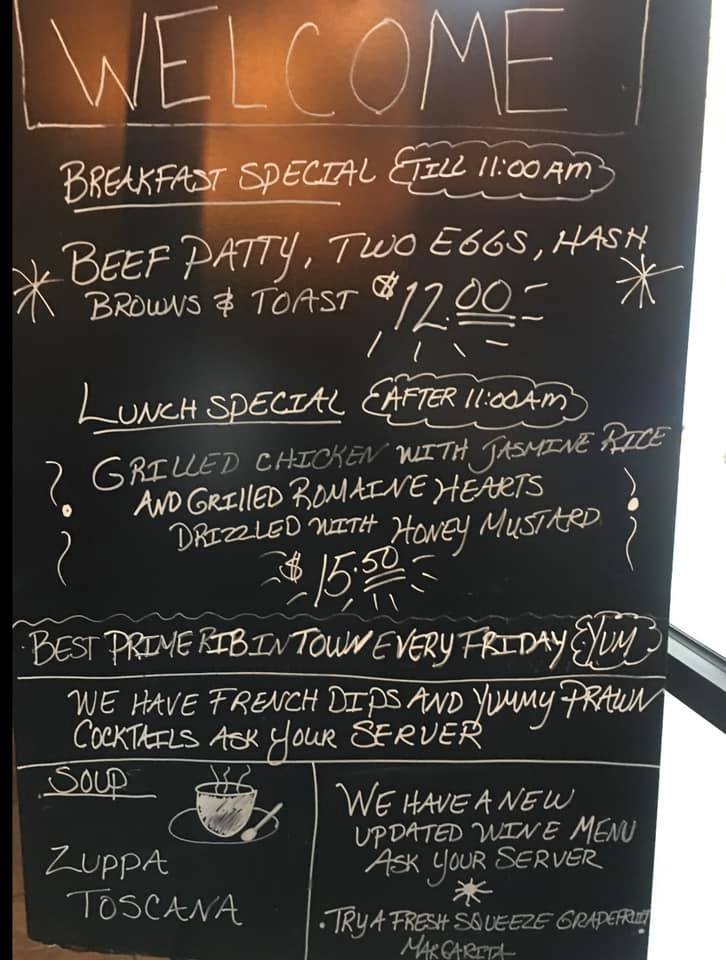 WELCOME
BREAKFAST SPECIAL TILL 11:00 AM
BEEF PATTY, TWO EGGS, HASH
BROWNS & TOAST $12.00
LUNCH SPECIAL AFTER 11:00AM
GRILLED CHICKEN WITH JASMINE RICE
AND GRILLED ROMAINE HEARTS
DRIZZLED WITH HONEY MUSTARD
$15.50
BEST PRIME RIB IN TOWN EVERY FRIDAY YUM
WE HAVE FRENCH DIPS AND YUMMY PRAWN
COCKTAILS ASK YOUR SERVER
SOUP
ZUPPA
TOSCANA
WE HAVE A NEW
UPDATED WINE MENU
ASK YOUR SERVER
• TRY A FRESH SQUEEZE GRAPEFRUIT
MARGARITA